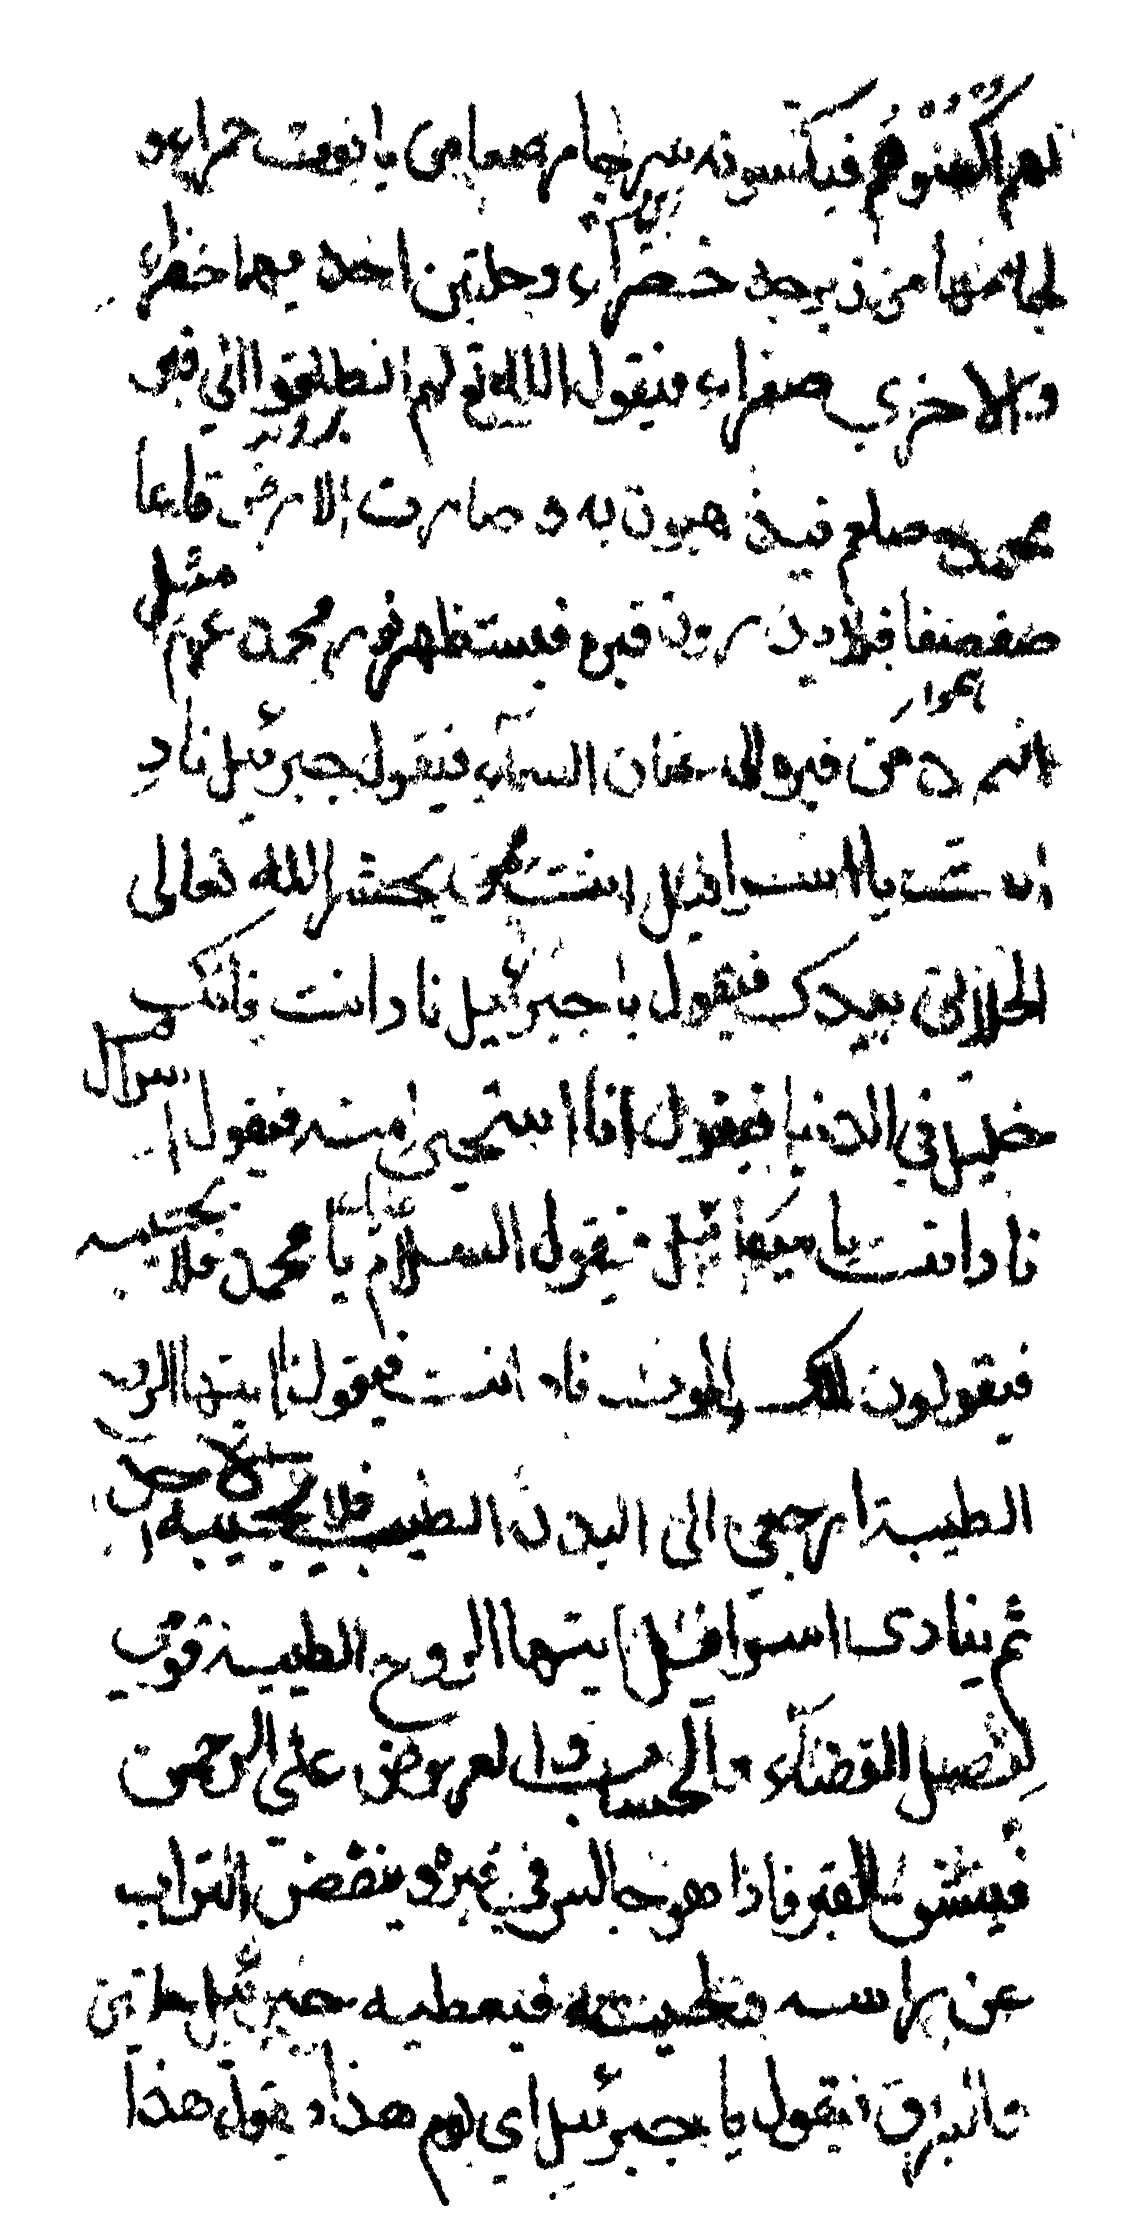 نعم اكسوهم فيكسونه سرجا مرصعا من ياقوت حمراء و
لجامها من زبرجد خضراء وحلتين احدىهما خضراء
والاخرى صفراء فيقول الله تع لهم انطلقوا الى قبر
محمد صلعم فيذهبون به وصارت الارض قاعا
صفصفا فلا يدرون قبره فيستظهر نور محمد عم مثل
من قبره الى عنان السماء فيقول جبرئيل ناد
انت يا اسرافيل انت من يحشر الله تعالى
الخلائق بيدك فيقول يا جبرئيل ناد انت فانك
خليل في الدنيا فيقول انا استحيي منه فيقول
ناد انت يا ميكائيل فيقول السلام عليك يا محمد فلا يجيبه
فيقولون لملك الموت ناد انت فيقول ايتها الروح
الطيبة ارجعي الى البدن الطيب فلا يجيبه احد
ثم ينادى اسرافيل ايتها الروح الطيبة قومي
لفصل القضاء والحساب والعرض على الرحمن
فينشق القبر فاذا هو جالس في قبره وينفض التراب
عن راسه ولحيته فيعطيه جبرئيل حلتين
والبراق فيقول يا جبرئيل اي يوم هذا ويقول هذا